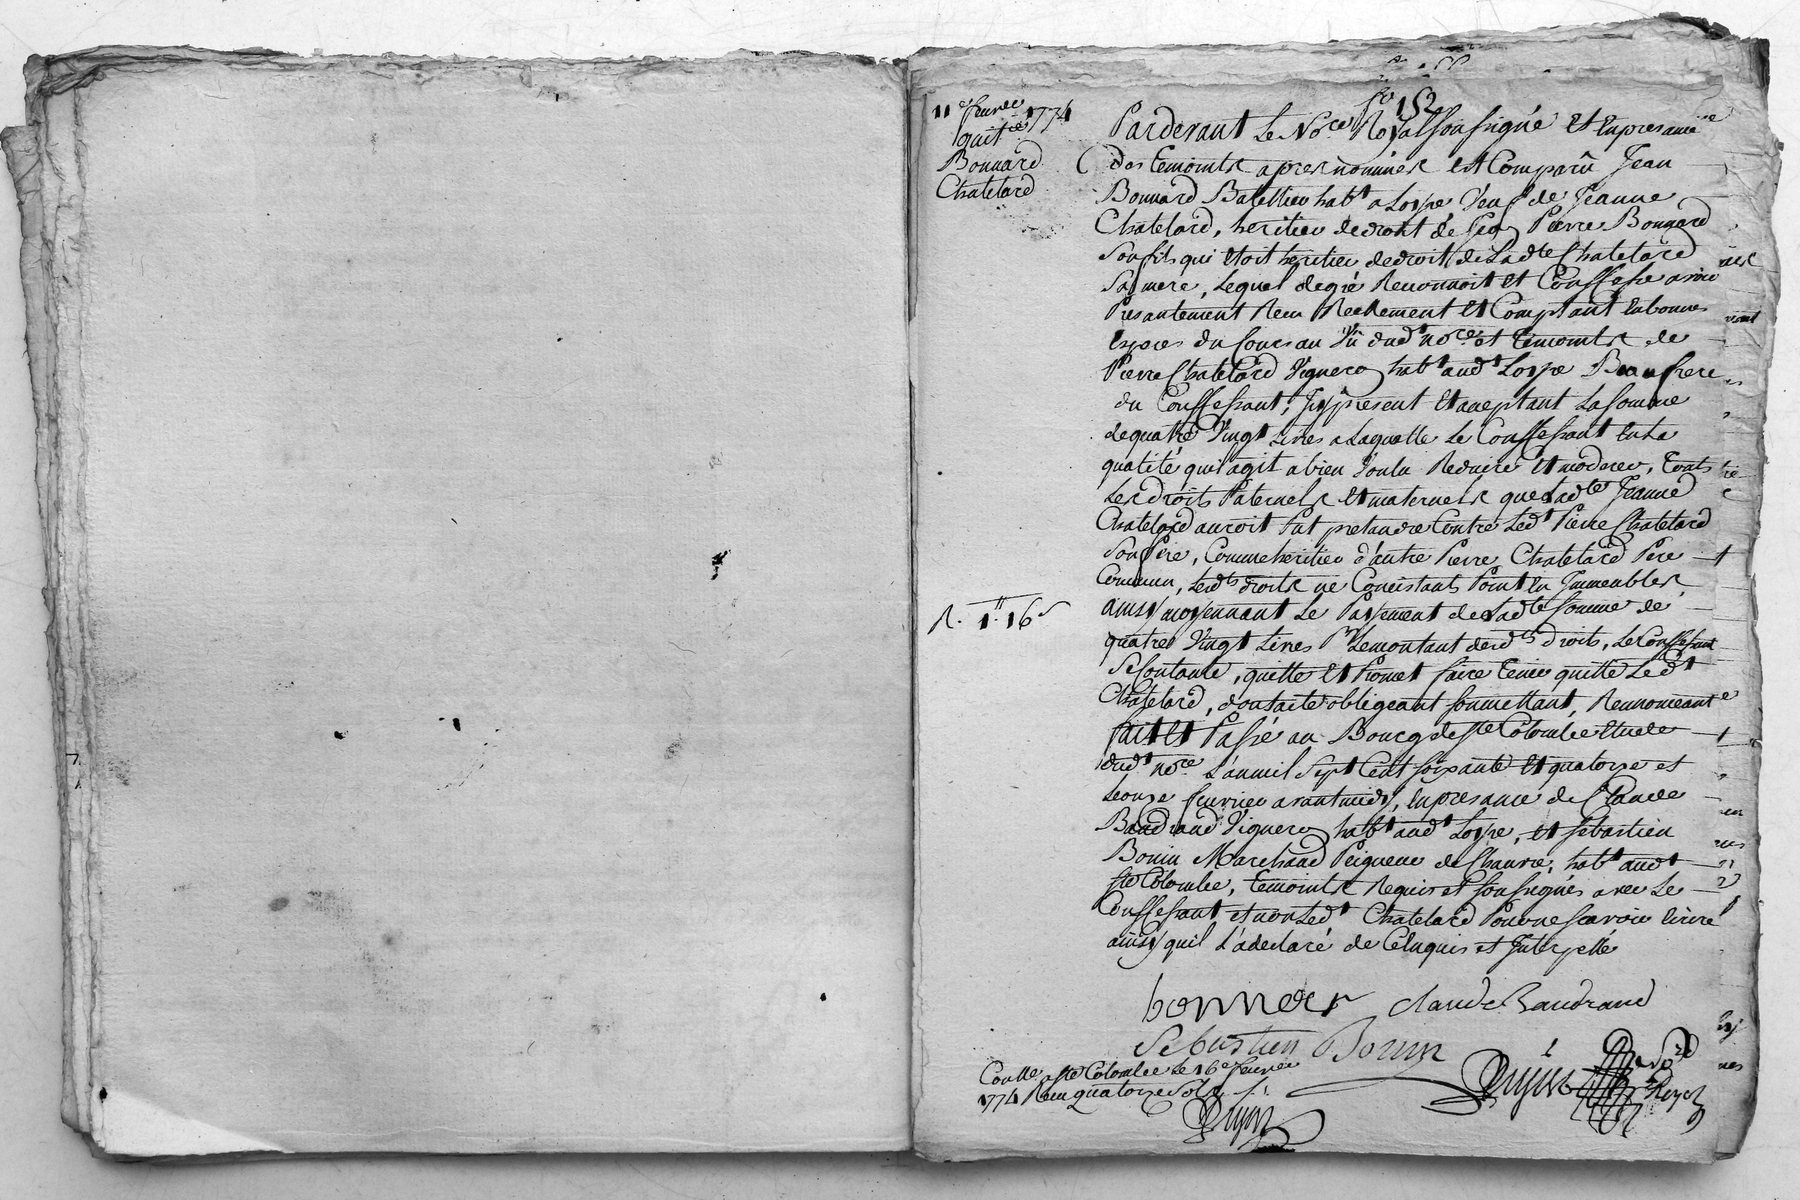 fo 152
11e feuvrier 1774
quitce
Bonnard
Chatelard
Pardevant Le Nore Royal soussigné Et en presance
des Temoints apres nommés Est Comparû Jean
Bonnard Batellier habt a Loyre Veuf de Jeanne
Chatelard, heritier de droit de feu Pierre Bonnard
Son fils qui Etoit heritier de droit de Ladte Chatelard
Sa mere, Lequel de gré Reconnoit et Confesse avoir
Presantement Reçu Reellement Et Comptant en bonnes
Especes du Cours au Vû dudt nore et Temoints de
Pierre Chatelard Vigneron habt audt Loyre Beaufrere
du Confessant, Icy present Et acceptant La Somme
de quatre Vingt Livres a Laquelle Le Confessant en La
qualité quil agit a bien Voulu Reduire Et moderer, Touts
Les droits Paternels Et maternels que Ladte Jeanne
Chatelard auroit Put pretandre Contre Ledt Pierre Chatelard
Son frere, Comme heritier d'autre Pierre Chatelard Pere
Commun, Lesdts droits ne Consistants Point en Immeubles
ainsy moyennant Le Payement de Ladte somme de
R. 1ll 16s
quatre Vingt Livres Pr Le montant desdts droits, Le Confessant
Se Contante, quitte Et Promet faire Tenir quitte Ledt
Chatelard, dont acte obligeant soumettant, Rennonceant
fait Et Passé au Bourg de Ste Colombe Etude
dudt nore L'an mil Sept Cent soixante Et quatorze et
Le onze feuvrier avant midy, en presance de Claude
Baudrand Vigneron habt audt Loyre, et sebastien
Bonin Marchand Peigneur de Chanvre, habt audt
Ste Colombe, Temoints Requis et soussignés avec Le
Confessant et non Ledt Chatelard Pour ne scavoir Ecrire
ainsy quil L'a declaré de Ce Enquis et Interpellé
bonnard claude Baudrand
Sebastien Bonin
Conlle a Ste Colombe Le 16e feuvrier
1774 Reçu quatorze Sols